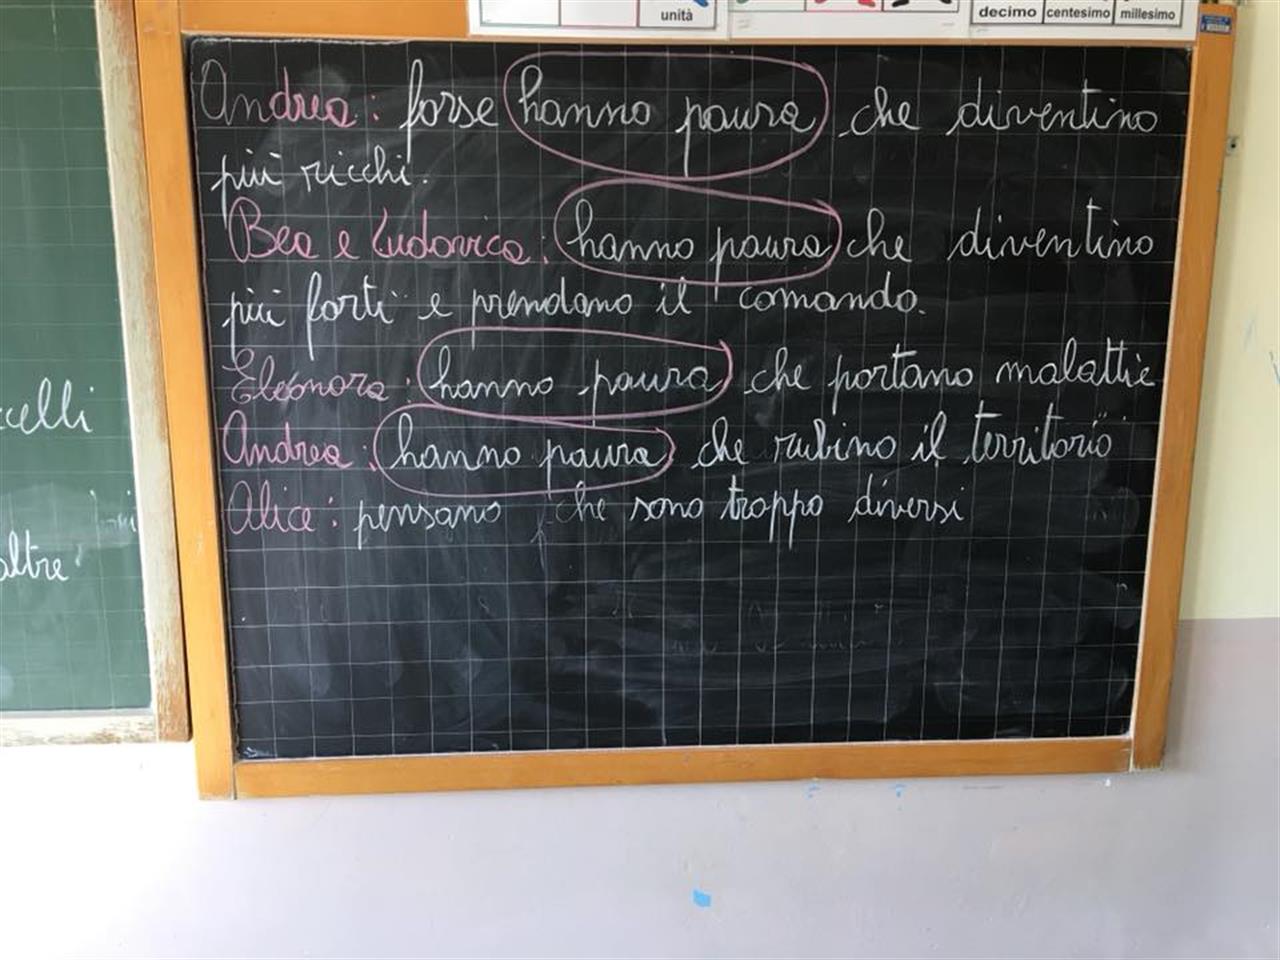 unità
decimo centesimo millesimo
Andrea: forse hanno paura che diventino
più ricchi.
Bea e Ludovica: hanno paura che diventino
più forti e prendano il comando.
Eleonora: hanno paura che portano malattie
Andrea: hanno paura che rubino il territorio
Alice: pensano che sono troppo diversi
altre